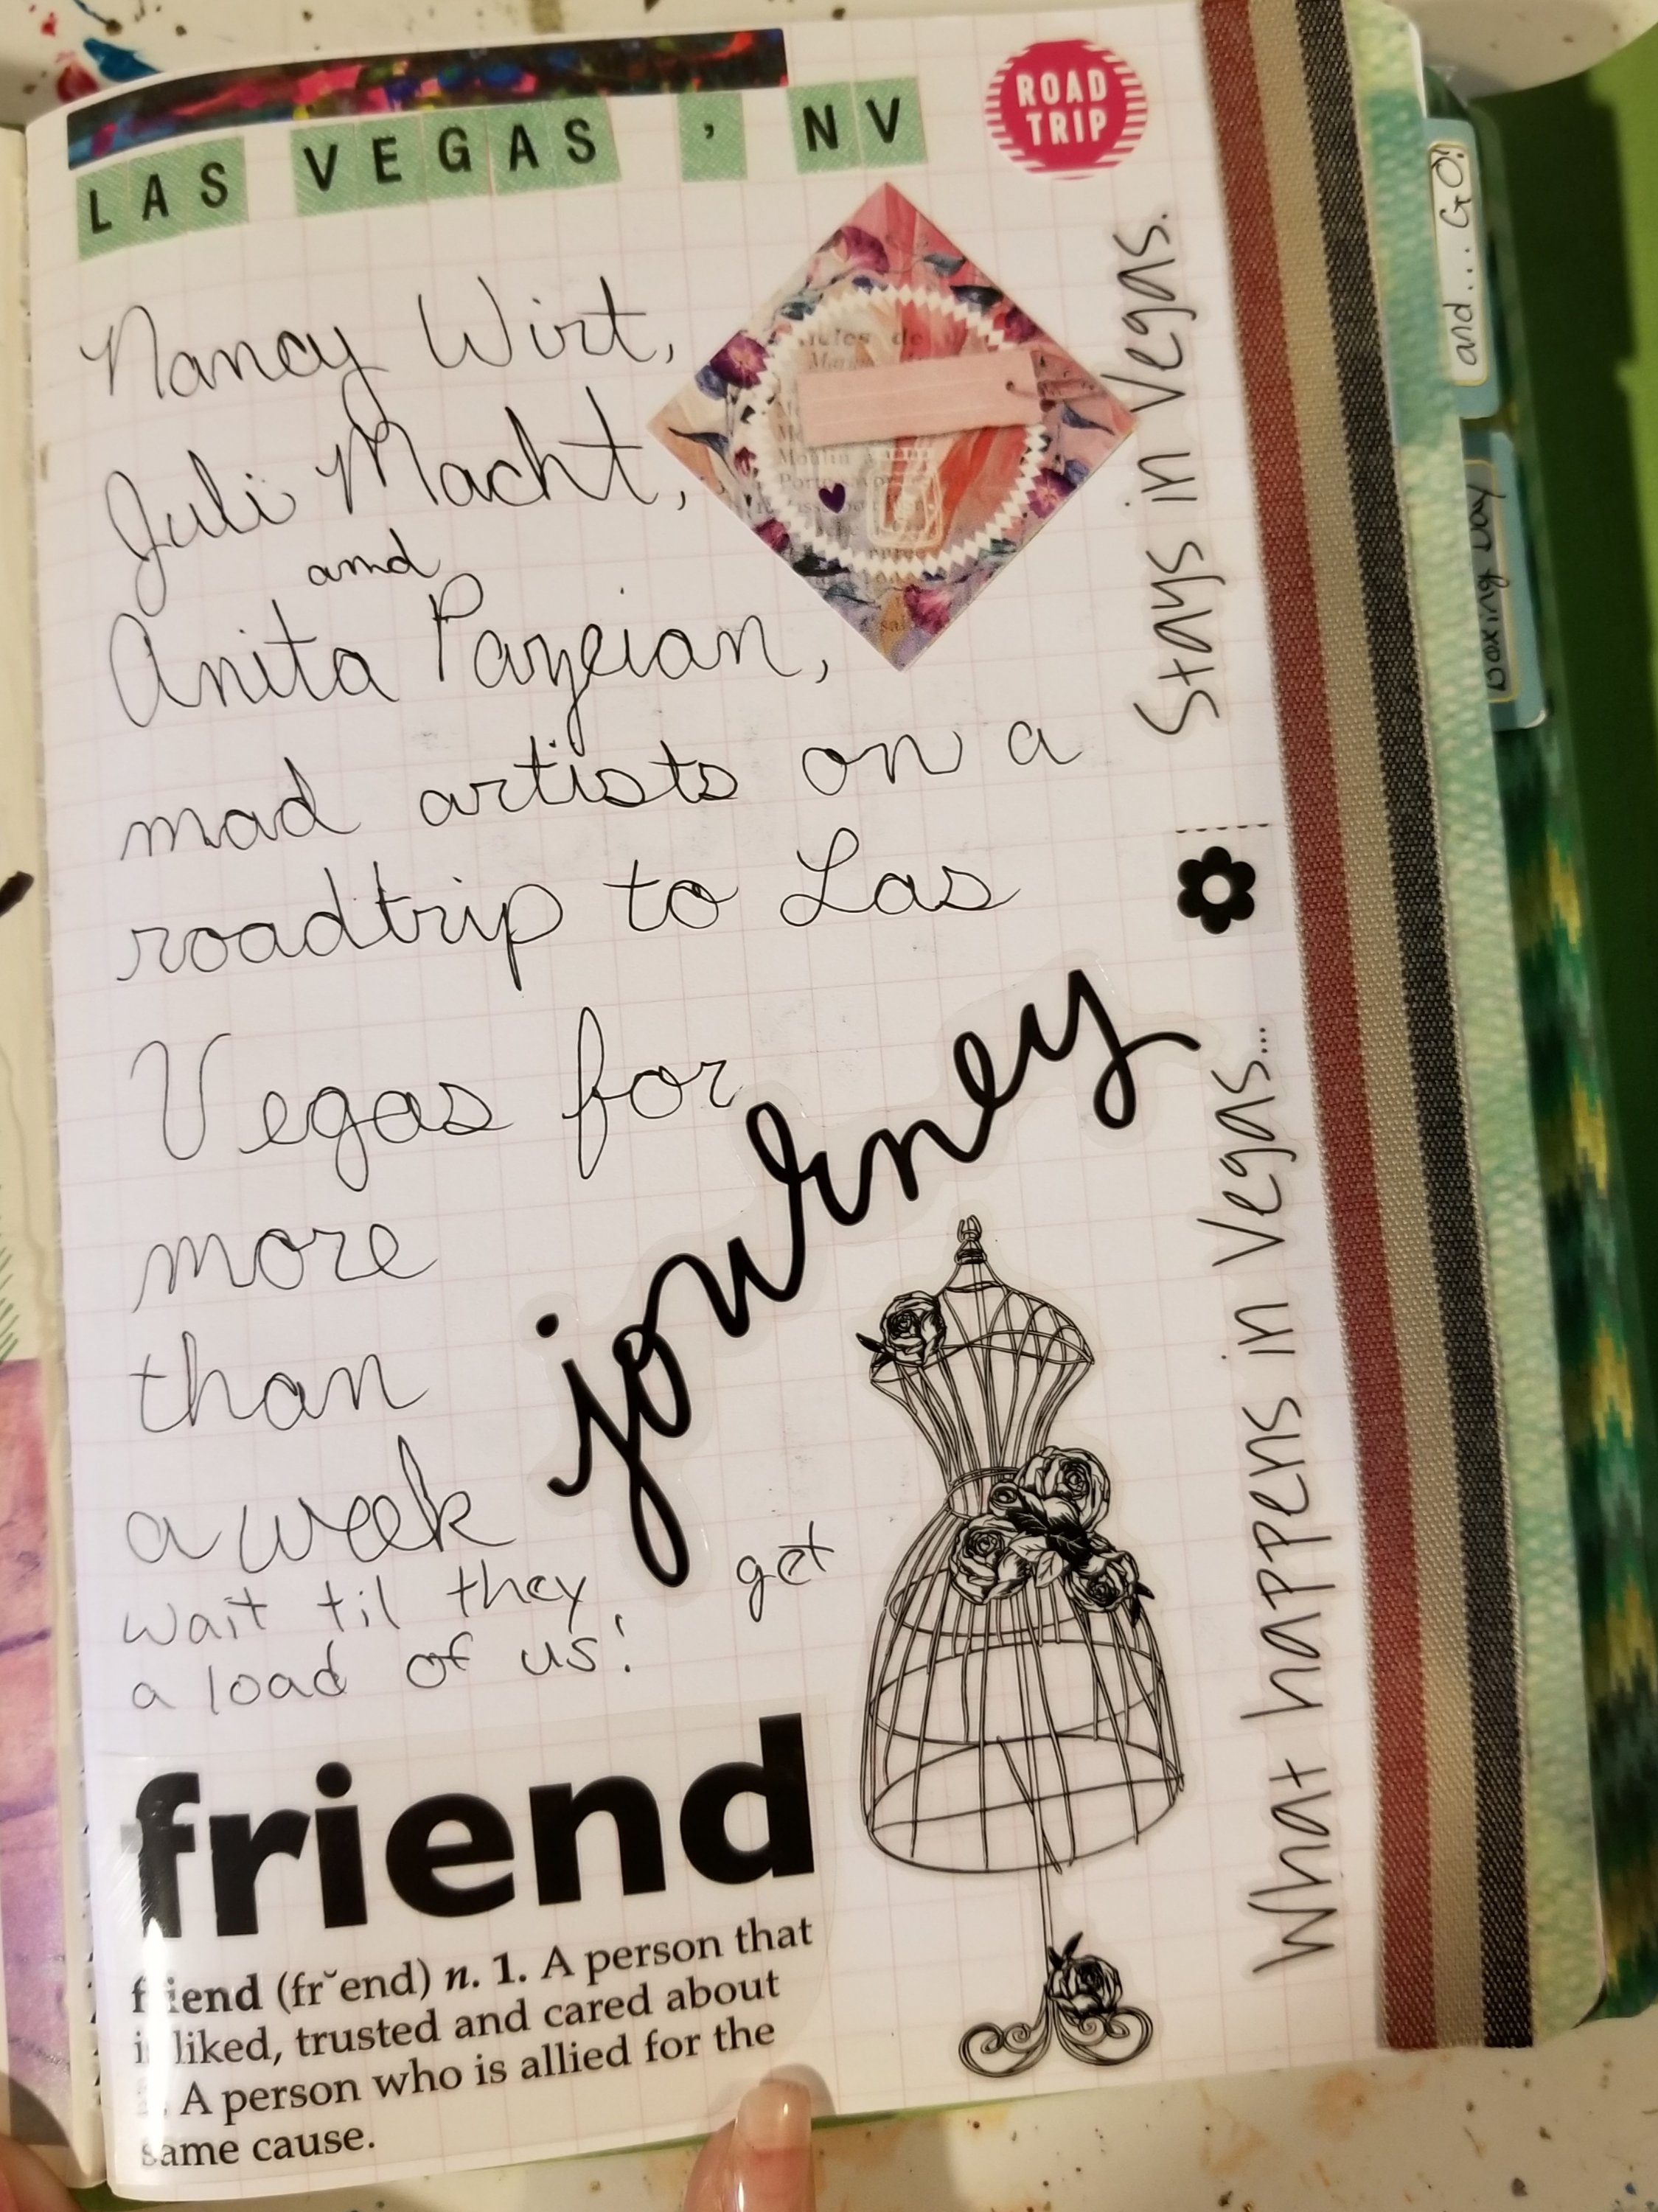 LAS VEGAS , NV
ROAD TRIP
Nancy Wirt,
Juli Macht,
and
Anita Pazeian,
mad artists on a
roadtrip to Las
Vegas for
more
than
a week
journey
wait til they get
a load of us!
friend
friend (fr˘end) n. 1. A person that
is liked, trusted and cared about
2. A person who is allied for the
same cause.
What happens in Vegas...
Stays in Vegas.
and... GO!
Boxing Day